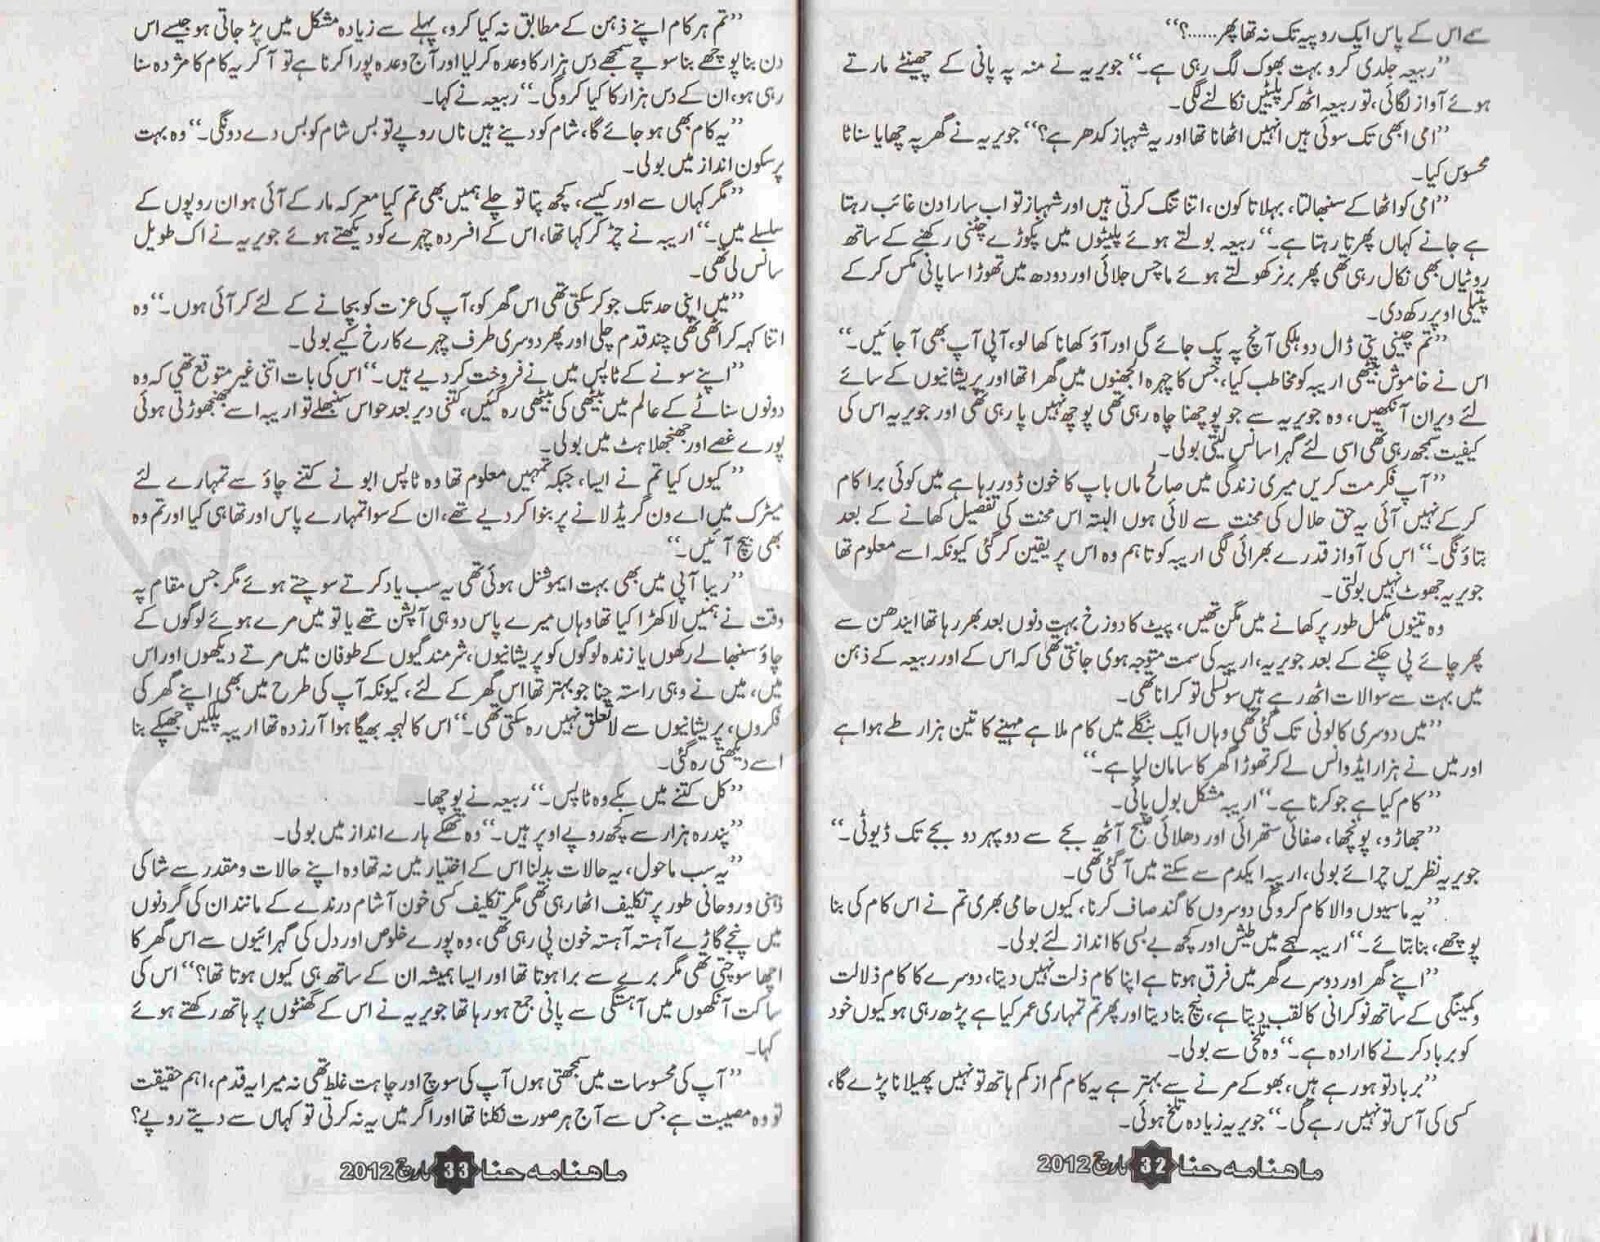 سے اس کے پاس ایک روپیہ تک نہ تھا پھر......؟‘‘
’’ربیعہ جلدی کرو بہت بھوک لگ رہی ہے۔‘‘ جویریہ نے منہ پہ پانی کے چھینٹے مارتے
ہوئے آواز لگائی، تو ربیعہ اٹھ کر پلیٹیں نکالنے لگی۔
’’امی ابھی تک سوئی ہیں انہیں اٹھانا تھا اور یہ شہباز کدھر ہے؟‘‘ جویریہ نے گھر پہ چھایا سناٹا
محسوس کیا۔
’’امی کو اٹھا کے سنبھالتا، بہلاتا کون، اتنا تنگ کرتی ہیں اور شہباز تو اب سارا دن غائب رہتا
ہے جانے کہاں پھرتا رہتا ہے۔‘‘ ربیعہ بولتے ہوئے پلیٹوں میں پکوڑے چٹنی رکھنے کے ساتھ
روٹیاں بھی نکال رہی تھی پھر برنر کھولتے ہوئے ماچس جلائی اور دودھ میں تھوڑا سا پانی مکس کر کے
پتیلی اوپر رکھ دی۔
’’تم چینی پتی ڈال دو ہلکی آنچ پہ پک جائے گی اور آؤ کھانا کھا لو، آپی آپ بھی آ جائیں۔‘‘
اس نے خاموش بیٹھی اریبہ کو مخاطب کیا، جس کا چہرہ الجھنوں میں گھرا تھا اور پریشانیوں کے سائے
لئے ویران آنکھیں، وہ جویریہ سے جو پوچھنا چاہ رہی تھی پوچھ نہیں پا رہی تھی اور جویریہ اس کی
کیفیت سمجھ رہی تھی اسی لئے گہرا سانس لیتی بولی۔
’’آپ فکر مت کریں میری زندگی میں صالح ماں باپ کا خون دوڑ رہا ہے میں کوئی برا کام
کر کے نہیں آئی یہ حق حلال کی محنت سے لائی ہوں البتہ اس محنت کی تفصیل کھانے کے بعد
بتاؤنگی۔‘‘ اس کی آواز قدرے بھرائی لگی اریبہ کو تاہم وہ اس پر یقین کر گئی کیونکہ اسے معلوم تھا
جویریہ جھوٹ نہیں بولتی۔
وہ تینوں مکمل طور پر کھانے میں مگن تھیں، پیٹ کا دوزخ بہت دنوں بعد بھر رہا تھا ایندھن سے
پھر چائے پی چکنے کے بعد جویریہ، اریبہ کی سمت متوجہ ہوئی جانتی تھی کہ اس کے اور ربیعہ کے ذہن
میں بہت سے سوالات اٹھ رہے ہیں سو تسلی تو کرانا تھی۔
’’میں دوسری کالونی تک گئی تھی وہاں ایک بنگلے میں کام ملا ہے مہینے کا تین ہزار طے ہوا ہے
اور میں نے ہزار ایڈوانس لے کر تھوڑا گھر کا سامان لیا ہے۔‘‘
’’کام کیا ہے جو کرنا ہے۔‘‘ اریبہ مشکل بول پائی۔
’’جھاڑو، پونچھا، صفائی ستھرائی اور دھلائی صبح آٹھ بجے سے دوپہر دو بجے تک ڈیوٹی۔‘‘
جویریہ نظریں چرائے بولی، اریبہ ایکدم سے سکتے میں آ گئی تھی۔
’’یہ ماسیوں والا کام کرو گی دوسروں کا گند صاف کرنا، کیوں حامی بھری تم نے اس کام کی بنا
پوچھے، بنا بتائے۔‘‘ اریبہ لہجے میں طیش اور کچھ بے بسی کا انداز لئے بولی۔
’’اپنے گھر اور دوسرے گھر میں فرق ہوتا ہے اپنا کام ذلت نہیں دیتا، دوسرے کا کام ذلالت
و کمینگی کے ساتھ نوکرانی کا لقب دیتا ہے، نیچ بنا دیتا اور پھر تم تمہاری عمر کیا ہے پڑھ رہی ہو کیوں خود
کو برباد کرنے کا ارادہ ہے۔‘‘ وہ تلخی سے بولی۔
’’برباد تو ہو رہے ہیں، بھوکے مرنے سے بہتر ہے یہ کام کم از کم ہاتھ تو نہیں پھیلانا پڑے گا،
کسی کی آس تو نہیں رہے گی۔‘‘ جویریہ زیادہ تلخ ہوئی۔
ماهنامه حنا 32 مارچ 2012
’’تم ہر کام اپنے ذہن کے مطابق نہ کیا کرو، پہلے سے زیادہ مشکل میں پڑ جاتی ہو جیسے اس
دن بنا پوچھے بنا سوچے سمجھے دس ہزار کا وعدہ کر لیا اور آج وعدہ پورا کرنا ہے تو آ کر یہ کام کا مژدہ سنا
رہی ہو، ان کے دس ہزار کا کیا کرو گی۔‘‘ ربیعہ نے کہا۔
’’یہ کام بھی ہو جائے گا، شام کو دینے ہیں ناں روپے تو بس شام کو بس دے دونگی۔‘‘ وہ بہت
پر سکون انداز میں بولی۔
’’مگر کہاں سے اور کیسے، کچھ پتا تو چلے ہمیں بھی تم کیا معرکہ مار کے آئی ہو ان روپوں کے
سلسلے میں۔‘‘ اریبہ نے چڑ کر کہا تھا، اس کے افسردہ چہرے کو دیکھتے ہوئے جویریہ نے اک طویل
سانس لی تھی۔
’’میں اپنی حد تک جو کر سکتی تھی اس گھر کو، آپ کی عزت کو بچانے کے لئے کر آئی ہوں۔‘‘ وہ
اتنا کہہ کر اٹھی تھی چند قدم چلی اور پھر دوسری طرف چہرے کا رخ کیے بولی۔
’’اپنے سونے کے ٹاپس میں نے فروخت کر دیے ہیں۔‘‘ اس کی بات اتنی غیر متوقع تھی کہ وہ
دونوں سناٹے کے عالم میں بیٹھی کی بیٹھی رہ گئیں، کتنی دیر بعد حواس سنبھلے تو اریبہ اسے جھنجھوڑتی ہوئی
پورے غصے اور جھنجھلاہٹ میں بولی۔
’’کیوں کیا تم نے ایسا، جبکہ تمہیں معلوم تھا وہ ٹاپس ابو نے کتنے چاؤ سے تمہارے لئے
میٹرک میں اے ون گریڈ لانے پر بنوا کر دیے تھے، ان کے سوا تمہارے پاس اور تھا ہی کیا اور تم وہ
بھی بیچ آئیں۔‘‘
’’ریبا آپی میں بھی بہت ایموشنل ہوئی تھی یہ سب یاد کرتے سوچتے ہوئے مگر جس مقام پہ
وقت نے ہمیں لا کھڑا کیا تھا وہاں میرے پاس دو ہی آپشن تھے یا تو میں مرے ہوئے لوگوں کے
چاؤ سنبھالے رکھوں یا زندہ لوگوں کو پریشانیوں، شرمندگیوں کے طوفان میں مرتے دیکھوں اور اس
میں، میں نے وہی راستہ چنا جو بہتر تھا اس گھر کے لئے، کیونکہ آپ کی طرح میں بھی اپنے گھر کی
فکروں، پریشانیوں سے لاتعلق نہیں رہ سکتی تھی۔‘‘ اس کا لہجہ بھیگا ہوا آرزدہ تھا اریبہ پلکیں جھپکے بنا
اسے دیکھتی رہ گئی۔
’’کل کتنے میں بکے وہ ٹاپس۔‘‘ ربیعہ نے پوچھا۔
’’پندرہ ہزار سے کچھ روپے اوپر ہیں۔‘‘ وہ تھکے ہارے انداز میں بولی۔
’’یہ سب ماحول، یہ حالات بدلنا اس کے اختیار میں نہ تھا وہ اپنے حالات و مقدر سے شاکی
ذہنی و روحانی طور پر تکلیف اٹھا رہی تھی مگر تکلیف کسی خون آشام درندے کے مانند ان کی گردنوں
میں پنجے گاڑے آہستہ آہستہ خون پی رہی تھی، وہ پورے خلوص اور دل کی گہرائیوں سے اس گھر کا
اچھا سوچتی تھی مگر برے سے برا ہوتا تھا اور ایسا ہمیشہ ان کے ساتھ ہی کیوں ہوتا تھا؟‘‘ اس کی
ساکت آنکھوں میں آہستگی سے پانی جمع ہو رہا تھا جویریہ نے اس کے گھٹنوں پر ہاتھ رکھتے ہوئے
کہا۔
’’آپ کی محسوسات میں سمجھتی ہوں آپ کی سوچ اور چاہت غلط تھی نہ میرا یہ قدم، اہم حقیقت
تو وہ مصیبت ہے جس سے آج ہر صورت نکلنا تھا اور اگر میں یہ نہ کرتی تو کہاں سے دیتے روپے؟
ماهنامه حنا 33 مارچ 2012